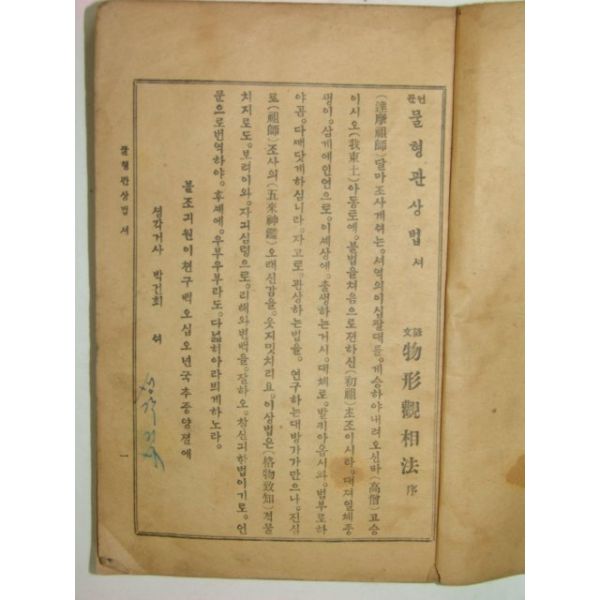 언문 물형관상법 셔
諺文 物形觀相法 序
(達摩祖師)달마조사게셔는。셔역의이십팔대를。계승하야내려오신바(高僧)고승
이시오(我東土)아동토에。불법을쳐음으로젼하신(初祖)초조이시라。대져일체즁
생이。삼계에인연으로。이셰상에。출생하는거시。대체로。발끼아음시과。범부로하
야곰。다깨닷게하십니라。자고로。관상하는법을。연구하는대방가가만으나。진실
로(祖師)조사의(五來神鑑)오래신감을。웃지밋치리요。이상법은(格物致知)격물
치지로도。보려이와。자긔심령으로。리해와변백을。잘하오。참신긔한법이기로。언
문으로번역하야。후셰에。우부우부라도。다넓히아라듸게하노라。
불조긔원이쳔구백오십오년국추즁양졀에
셩각거사 박건희 셔
성각거사
물형관상법 셔
一